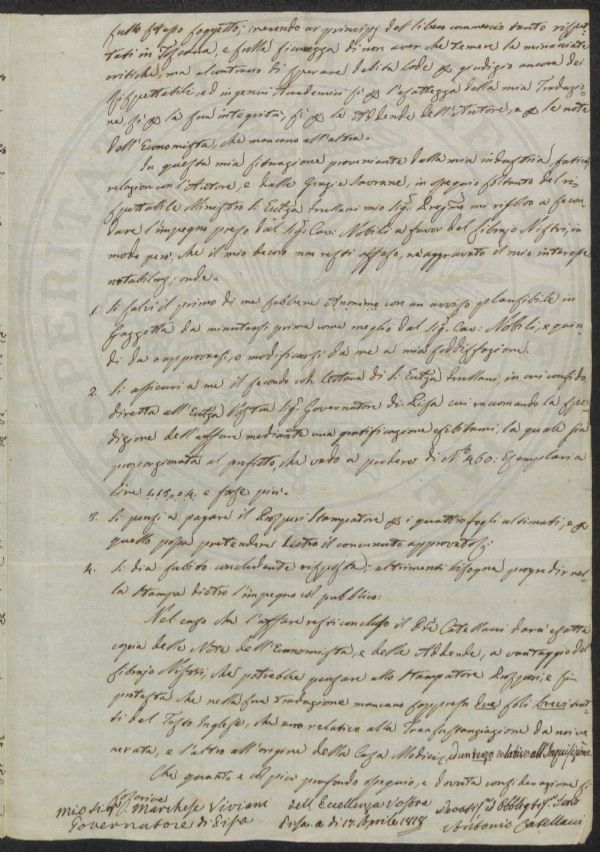 sullo stesso soggetto, inerendo ai principj del libero commercio tanto rispet-
tati in Toscana, e sulla sicurezza di non aver che temere la minacciata
critica; ma al contrario di sperare debita lode p giudizio ancora dei
rispettabili, ed ingenui Accademici sì p l'esattezza della mia Traduzio-
ne, sì p la sua integrità, sì p le Addende dell'Autore, e p le note
dell'Economista, che mancano all'altra.
In questa mia situazione proveniente dalla mia industria, fatica,
relazion con l'Autore, e dalle Grazie Sovrane, in ossequio soltanto del ri-
spettabile Ministro S. Ecc̃za Frullani mio Sig. Proñe mi rifolvo a secon-
dare l'impegno preso dal Sig. Cav: Nobili a favor del librajo Nistri, in
modo però, che il mio decoro non resti offeso, nè aggravato il mio interesse
notabilm; onde.
1. Si salvi il primo di me sebbene Anonimo con un avviso plausibile in
Gazzetta da minutarsi prima come meglio dal Sig. Cav: Nobili, e quin-
di da approvarsi, o modificarsi da me a mia soddisfazione.
2. Si assicuri a me il secondo con lettera di S. Ecc̃za Frullani, in cui confido,
diretta all'Ecc̃za Vostra Sig. Governatore di Pisa cui raccomando la spe-
dizione dell'affare mediante una gratificazione esibitami, la quale sia
proporzionata al profitto, che vado a perdere di N.º 460: Esemplari a
lire e forse più.
3. Si pensi a pagare il Prosperi Stampatore p i quattro fogli ultimati, e p
quello possa pretendere dietro il convenuto
4. Si dia subito concludente risposta; altrimenti bisogna progredir nel-
la stampa dietro l'impegno col pubblico:
Nel caso che l'affare resti concluso il Catellacci darà esatta
copia delle Note dell'Economista, e delle Addende, a vantaggio del
librajo Nistri, che potrebbe pensare allo Stampatore Prosperi; e si
protesta che nella sua traduzione mancano soppressi due soli brevi trat-
ti del Testo Inglese, che uno relativo alla Transustanziazione da noi ve-
nerata, e l'altro all'origine della Casa Medici, d'un terzo relativo all'Inquisizione
Che quanto e col più profondo ossequio, e dovuta considerazione si
Mio Sig. Marchese Viviani dell'Eccellenza Vostra
Governatore di Pisa Pisa a dì 17 Aprile 1818
Antonio Catellacci